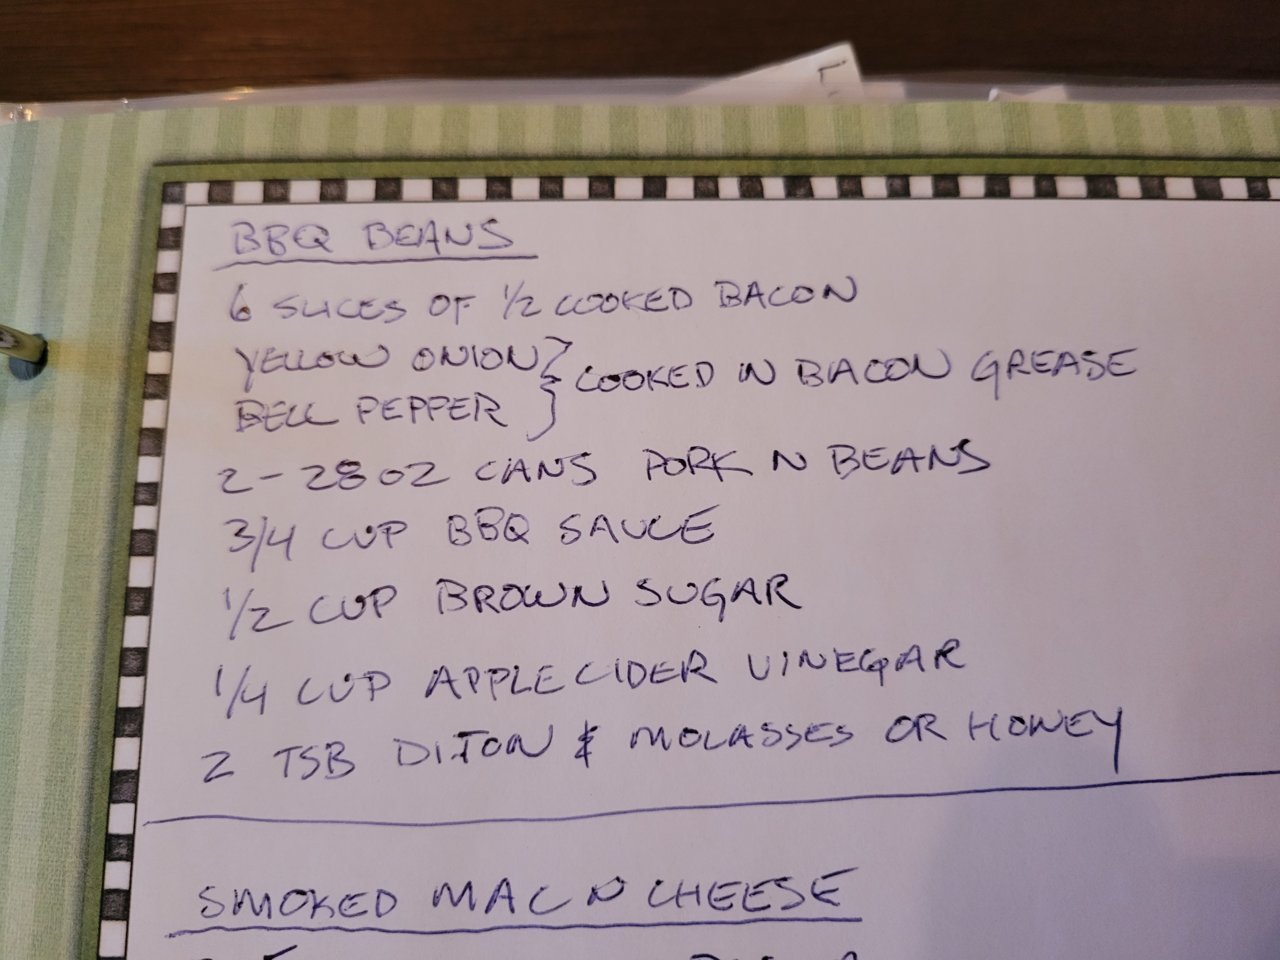 BBQ BEANS
6 SLICES OF 1/2 COOKED BACON
YELLOW ONION } COOKED IN BACON GREASE
BELL PEPPER
2-28 OZ CANS PORK N BEANS
3/4 CUP BBQ SAUCE
1/2 CUP BROWN SUGAR
1/4 CUP APPLE CIDER VINEGAR
2 TSB DIJON & MOLASSES OR HONEY
SMOKED MAC N CHEESE